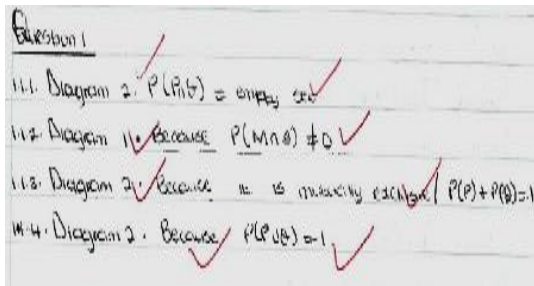 Question 1
1.1.1. Diagram 2. P(P∩G) = empty set
1.1.2. Diagram 1. Because P(M∩B) ≠ 0
1.1.3. Diagram 2. Because it is mutually exclusive / P(P) + P(G) = 1
1.1.4. Diagram 2. Because P(P∪G) = 1